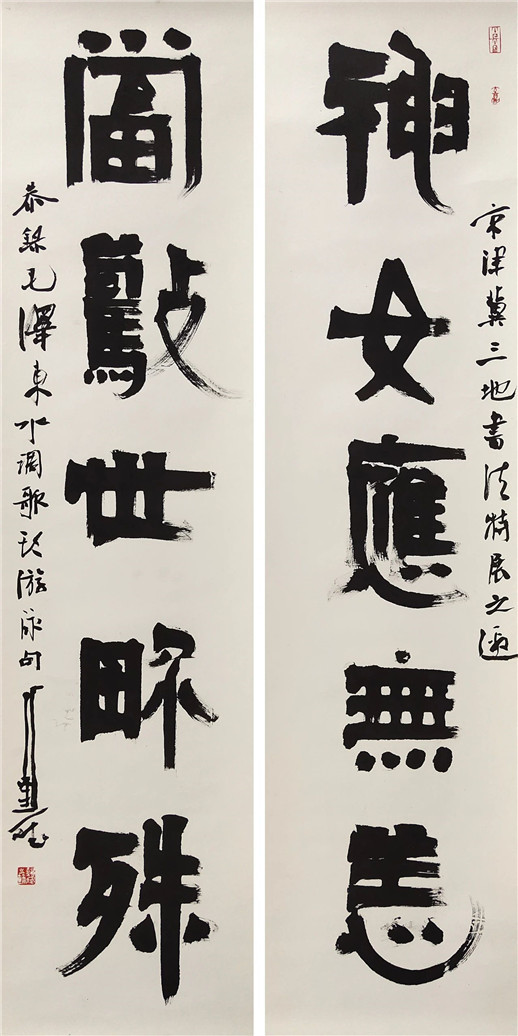 京津冀三地書法特展之邀
神女應無恙
當驚世畍殊
恭錄毛澤東水調歌头游泳句